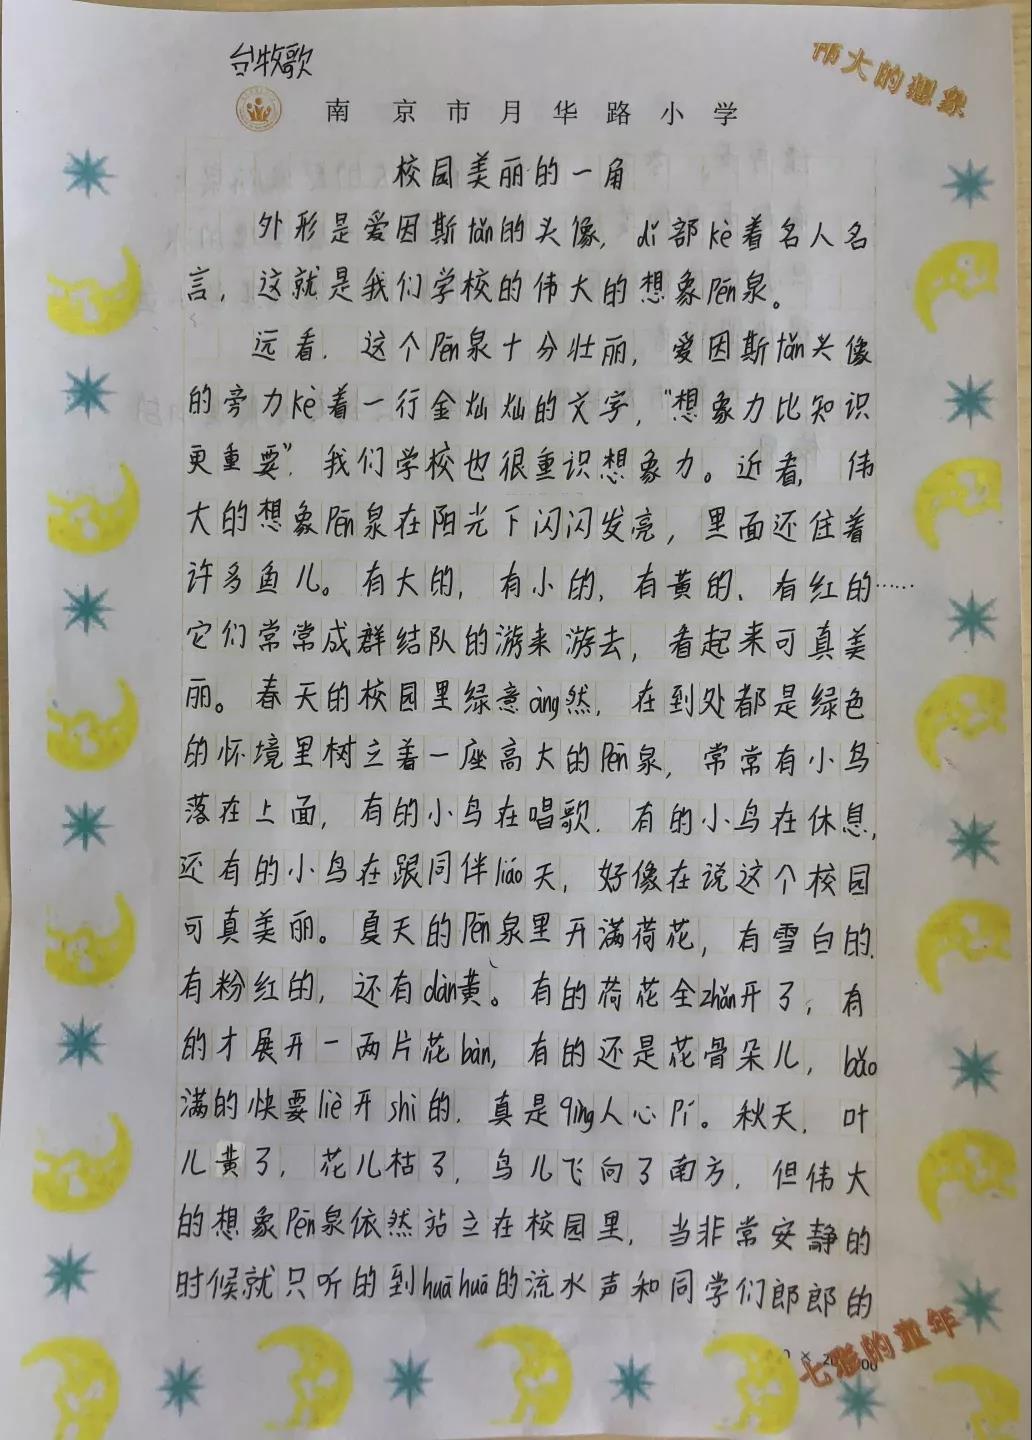 台牧歌
伟大的想象
南京市月华路小学
校园美丽的一角
外形是爱因斯tǎn的头像，dǐ部kè着名人名
言，这就是我们学校的伟大的想象Pēn泉。
远看，这个Pēn泉十分壮丽，爱因斯tǎn头像
的旁力kè着一行金灿灿的文字，“想象力比知识
更重要”，我们学校也很重识想象力。近看，伟
大的想象Pēn泉在阳光下闪闪发亮，里面还住着
许多鱼儿。有大的，有小的，有黄的、有红的……
它们常常成群结队的游来游去，看起来可真美
丽。春天的校园里绿意àng然，在到处都是绿色
的怀境里树立着一座高大的Pēn泉，常常有小鸟
落在上面，有的小鸟在唱歌．有的小鸟在休息，
还有的小鸟在跟同伴liáo天，好像在说这个校园
可真美丽。夏天的Pēn泉里开满荷花，有雪白的．
有粉红的，还有dàn黄。有的荷花全zhǎn开了，有
的才展开一两片花bàn，有的还是花骨朵儿，bǎo
满的快要liè开shì的．真是qìng人心Pí。秋天，叶
儿黄了，花儿枯了，鸟儿飞向了南方，但伟大
的想象Pēn泉依然站立在校园里，当非常安静的
时候就只听的到huāhuā的流水声和同学们郎郎的
七雅的童年